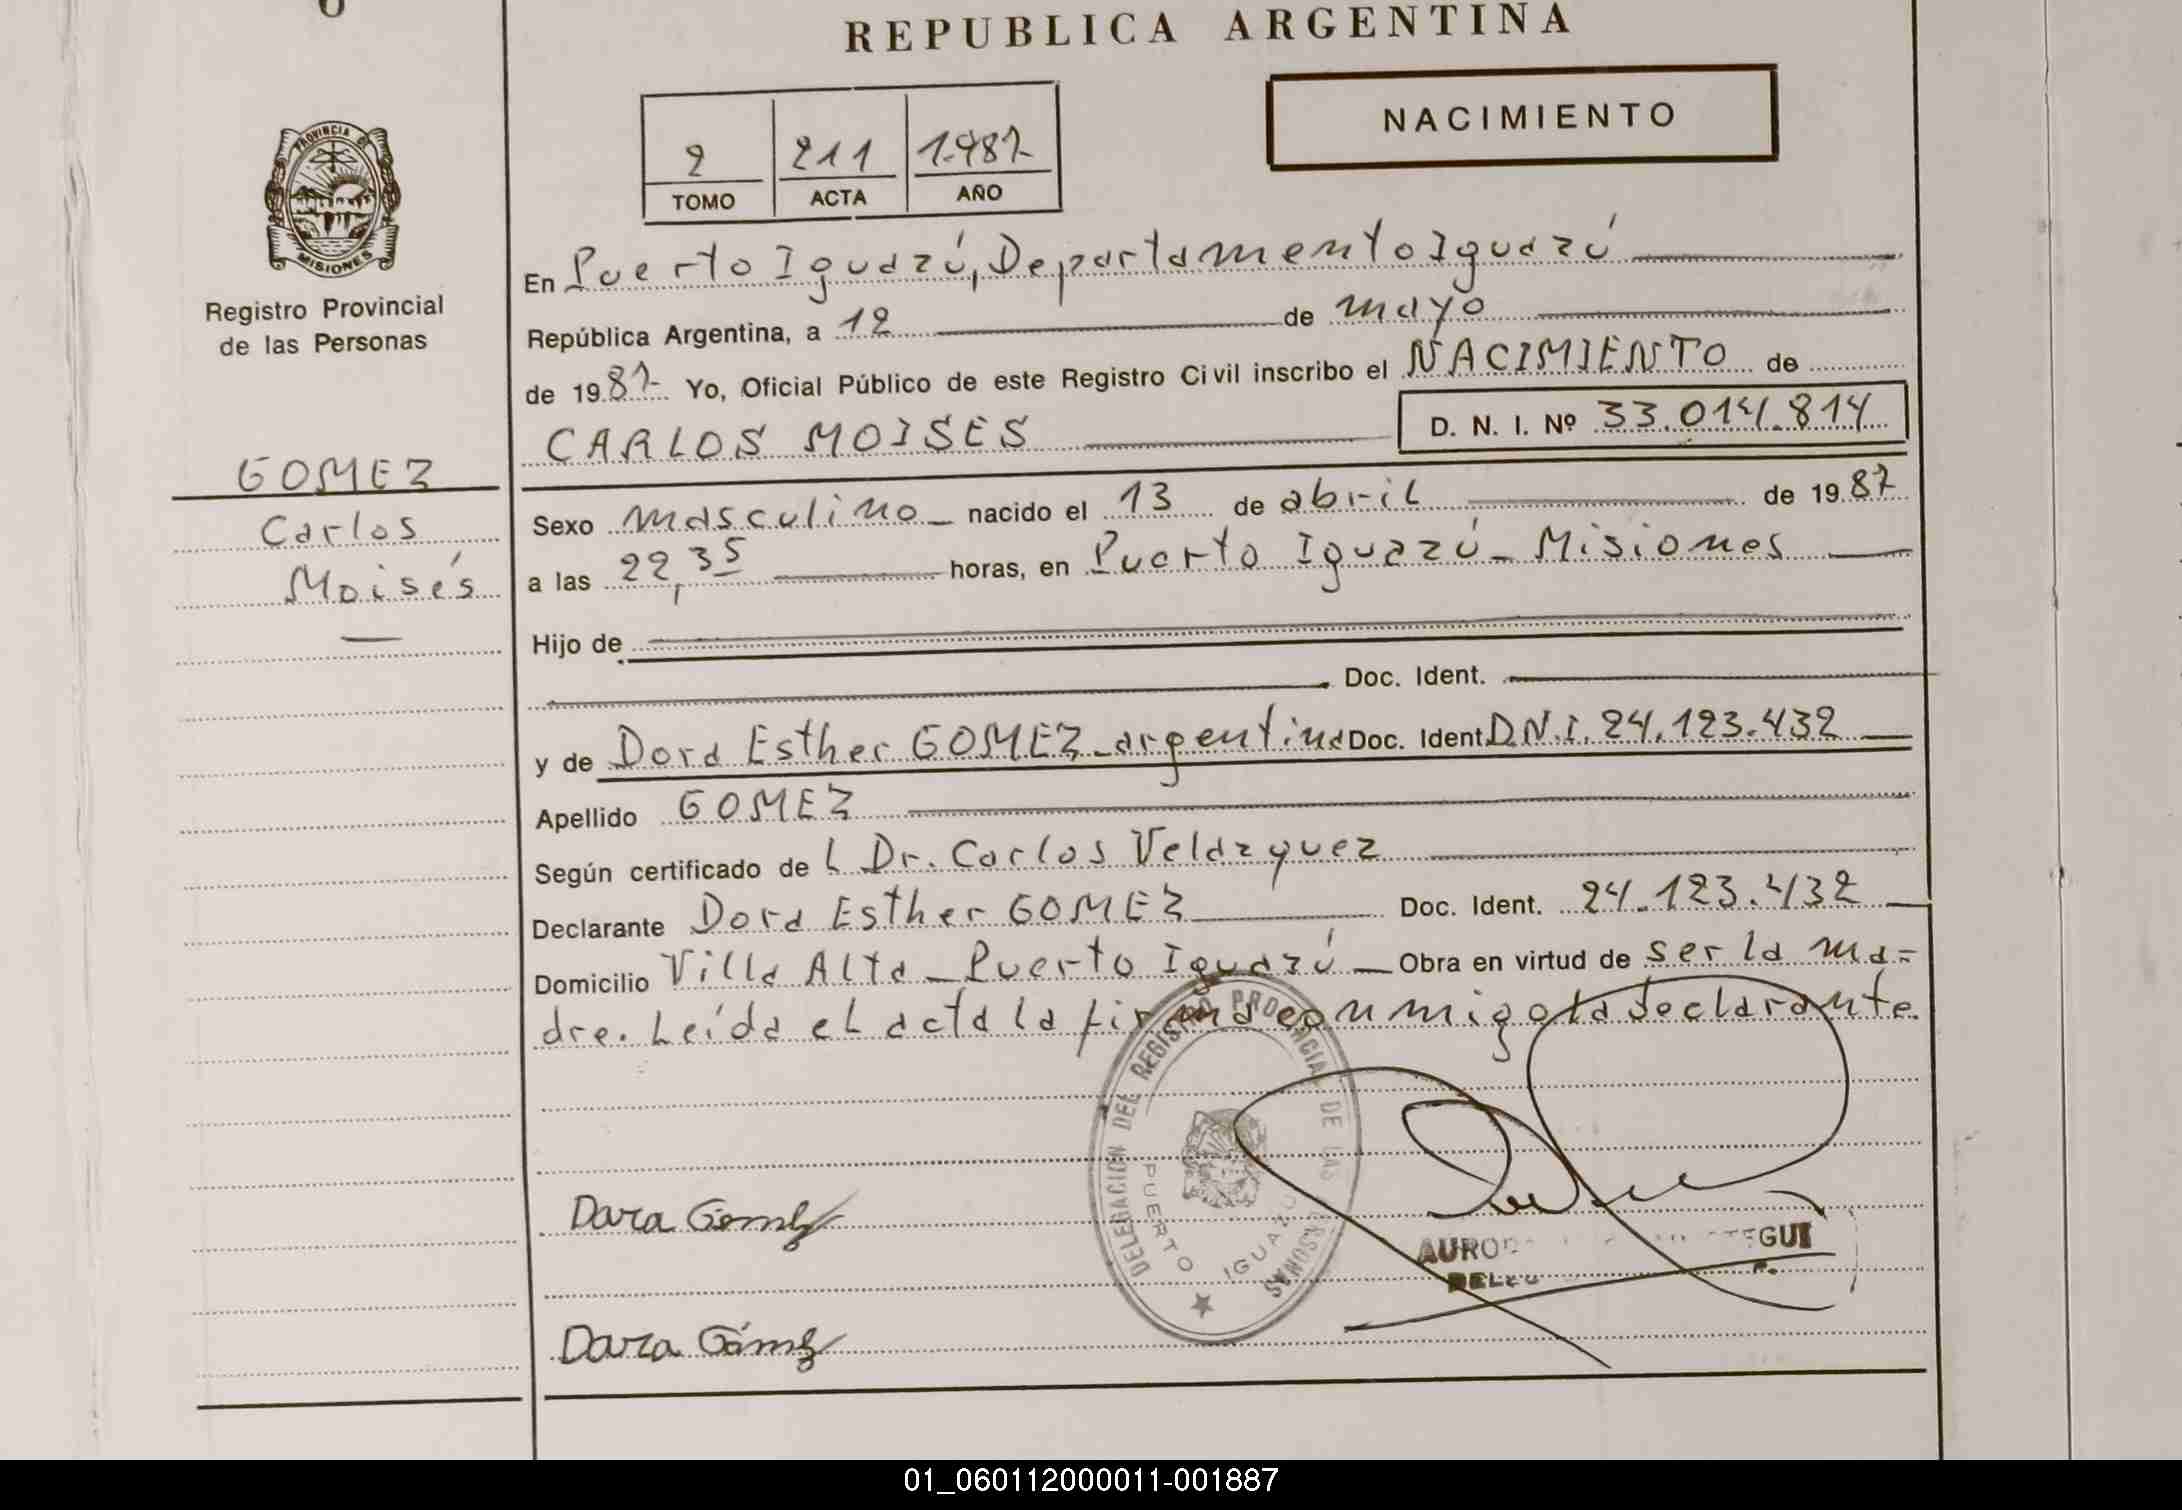 REPUBLICA ARGENTINA
NACIMIENTO
2 211 1.987
TOMO ACTA AÑO
PROVINCIA DE
MISIONES
Registro Provincial
de las Personas
GOMEZ
Carlos
Moisés
En Puerto Iguazú, Departamento Iguazú
República Argentina, a 12 de mayo
de 1987 Yo, Oficial Público de este Registro Civil inscribo el NACIMIENTO de
CARLOS MOISES D. N. I. Nº 33.014.814
Sexo masculino nacido el 13 de abril de 1987
a las 22,35 horas, en Puerto Iguazú - Misiones
Hijo de
Doc. Ident.
y de Dora Esther GOMEZ - argentina Doc. Ident. D.N.I. 24.123.432
Apellido GOMEZ
Según certificado de l Dr. Carlos Velazquez
Declarante Dora Esther GOMEZ Doc. Ident. 24.123.432
Domicilio Villa Alta - Puerto Iguazú - Obra en virtud de ser la ma=
dre. Leída el acta la firma conmigo la declarante.
DELEGACION DEL REGISTRO PROVINCIAL DE LAS PERSONAS
PUERTO IGUAZU
Dora
Dora
01_060112000011-001887